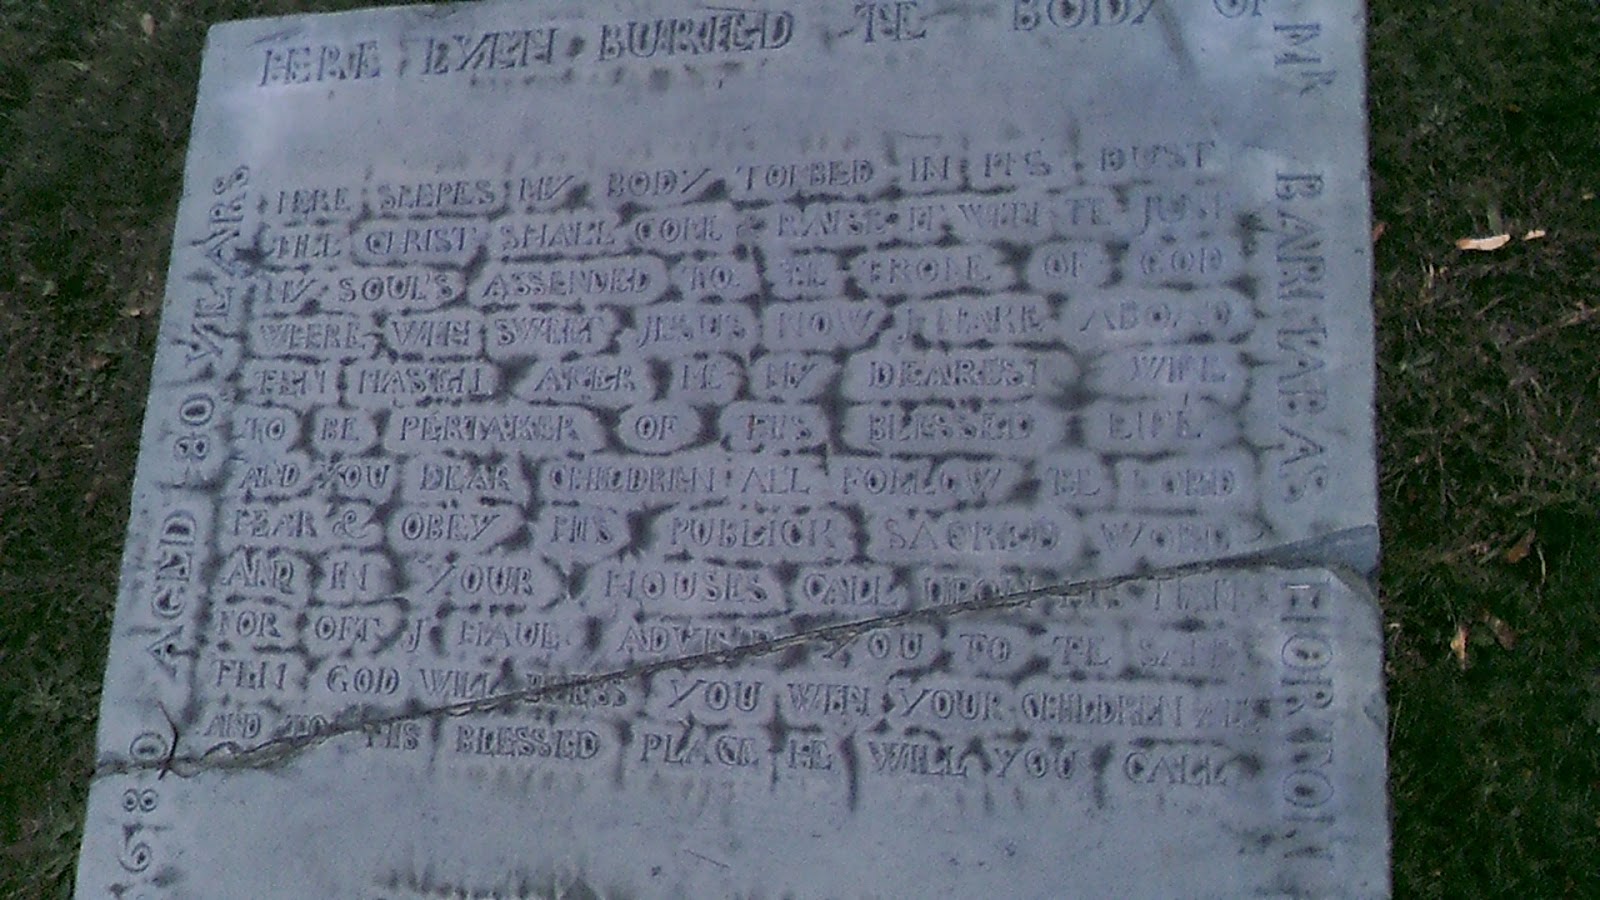 HERE LYETH BURIED TE BODY OF
MR BARNABAS HORTON
HERE SLEEPES MY BODY TOMBED IN ITS DUST
TILL CHRIST SHALL COME & RAISE IT WITH TE JUST
MY SOUL'S ASSENDED TO TE THRONE OF GOD
WHERE WITH SWEET JESUS NOW J MAKE ABOAD
THEN HASTEN AFTER ME MY DEAREST WIFE
TO BE PERTAKER OF HIS BLESSED LIFE
AND YOU DEAR CHILDREN ALL FOLLOW TE LORD
HEAR & OBEY HIS PUBLICK SACRED WORD
AND IN YOUR HOUSES CALL UPON HIS
FOR OFT J HAUE ADVISED YOU TO TE SAME
THEN GOD WILL BLESS YOU WITH YOUR CHILDREN ALL
AND TO HIS BLESSED PLACE HE WILL YOU CALL
680 AGED 80 YEARS